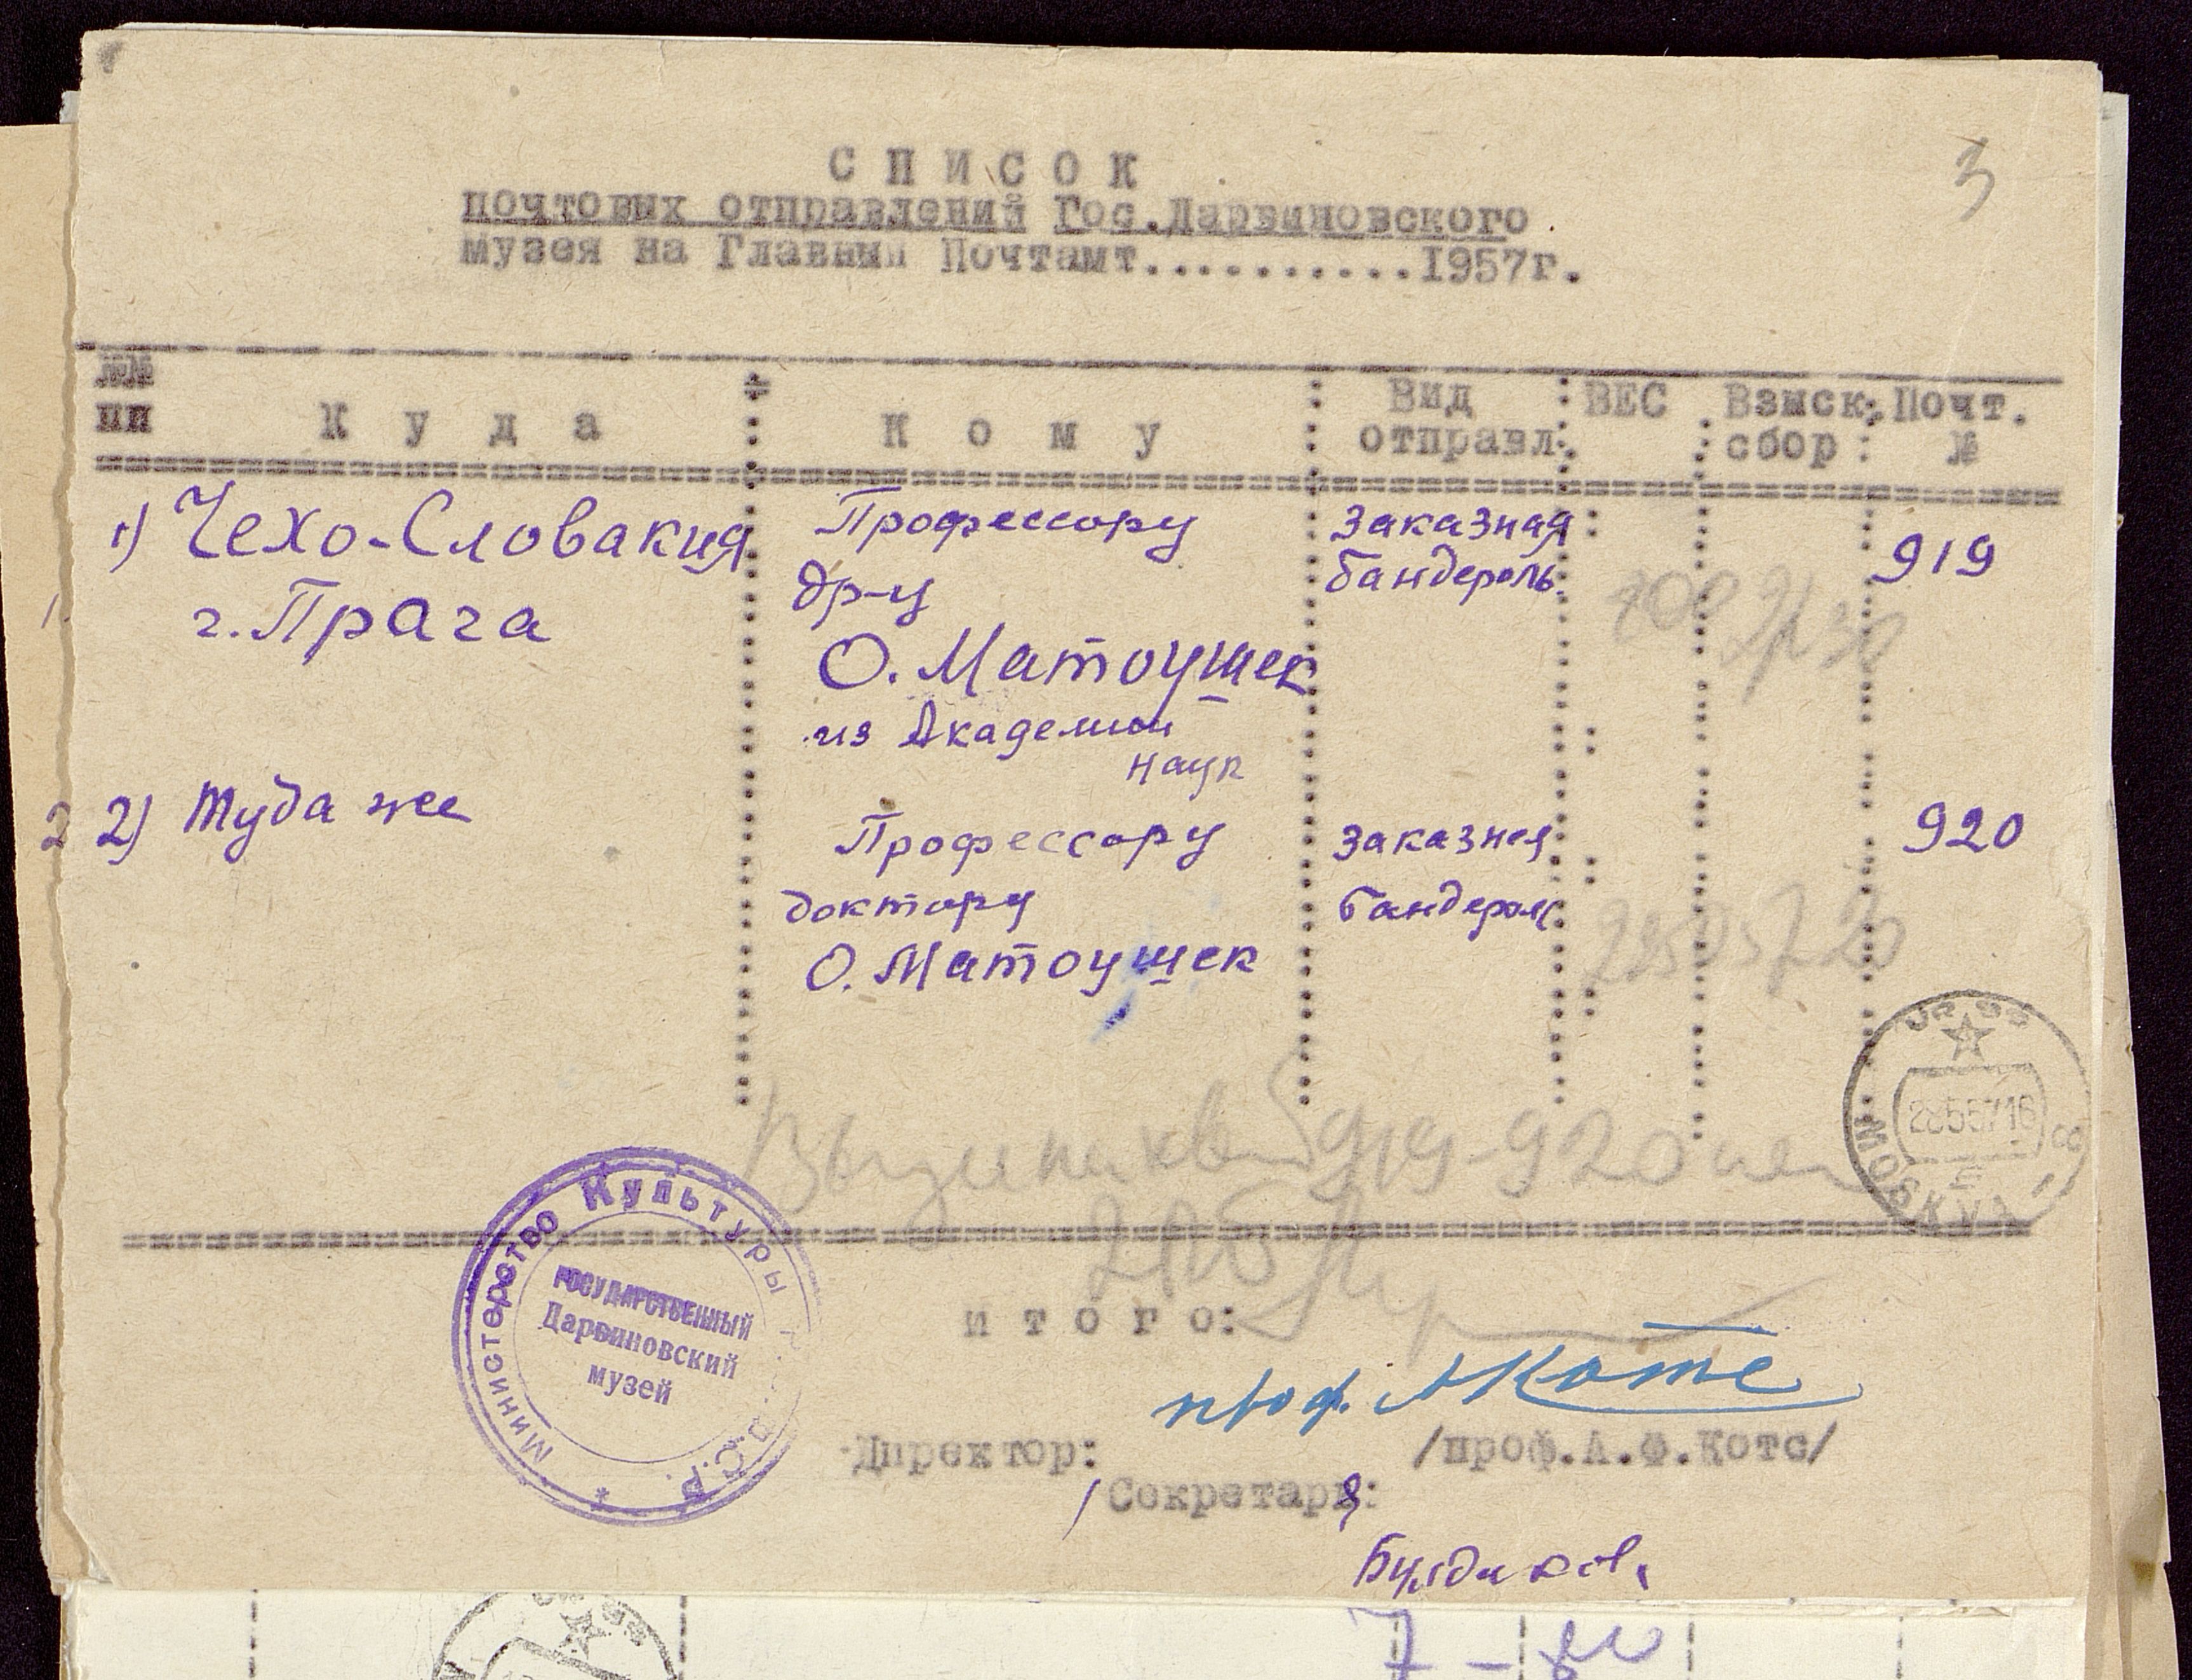 3
СПИСОК
почтовых отправлений Гос.Дарвиновского
музея на Главный Почтамт..........1957г.
№№ пп
Куда
Кому
Вид отправл.
ВЕС
Взыск. сбор
Почт. №
1) Чехо-Словакия
г. Прага
Профессору
др-у
О. Матоушек
из Академии
наук
Заказная
бандероль
919
2 2) Туда же
Профессору
доктору
О. Матоушек
Заказная
бандероль
920
919-920
MOSKVA
28 5 57 16
Министерство Культуры
ГОСУДАРСТВЕННЫЙ
Дарвиновский
музей
итого:
проф. АКотс
Директор: /проф.А.Ф.Котс/
Секретарь: